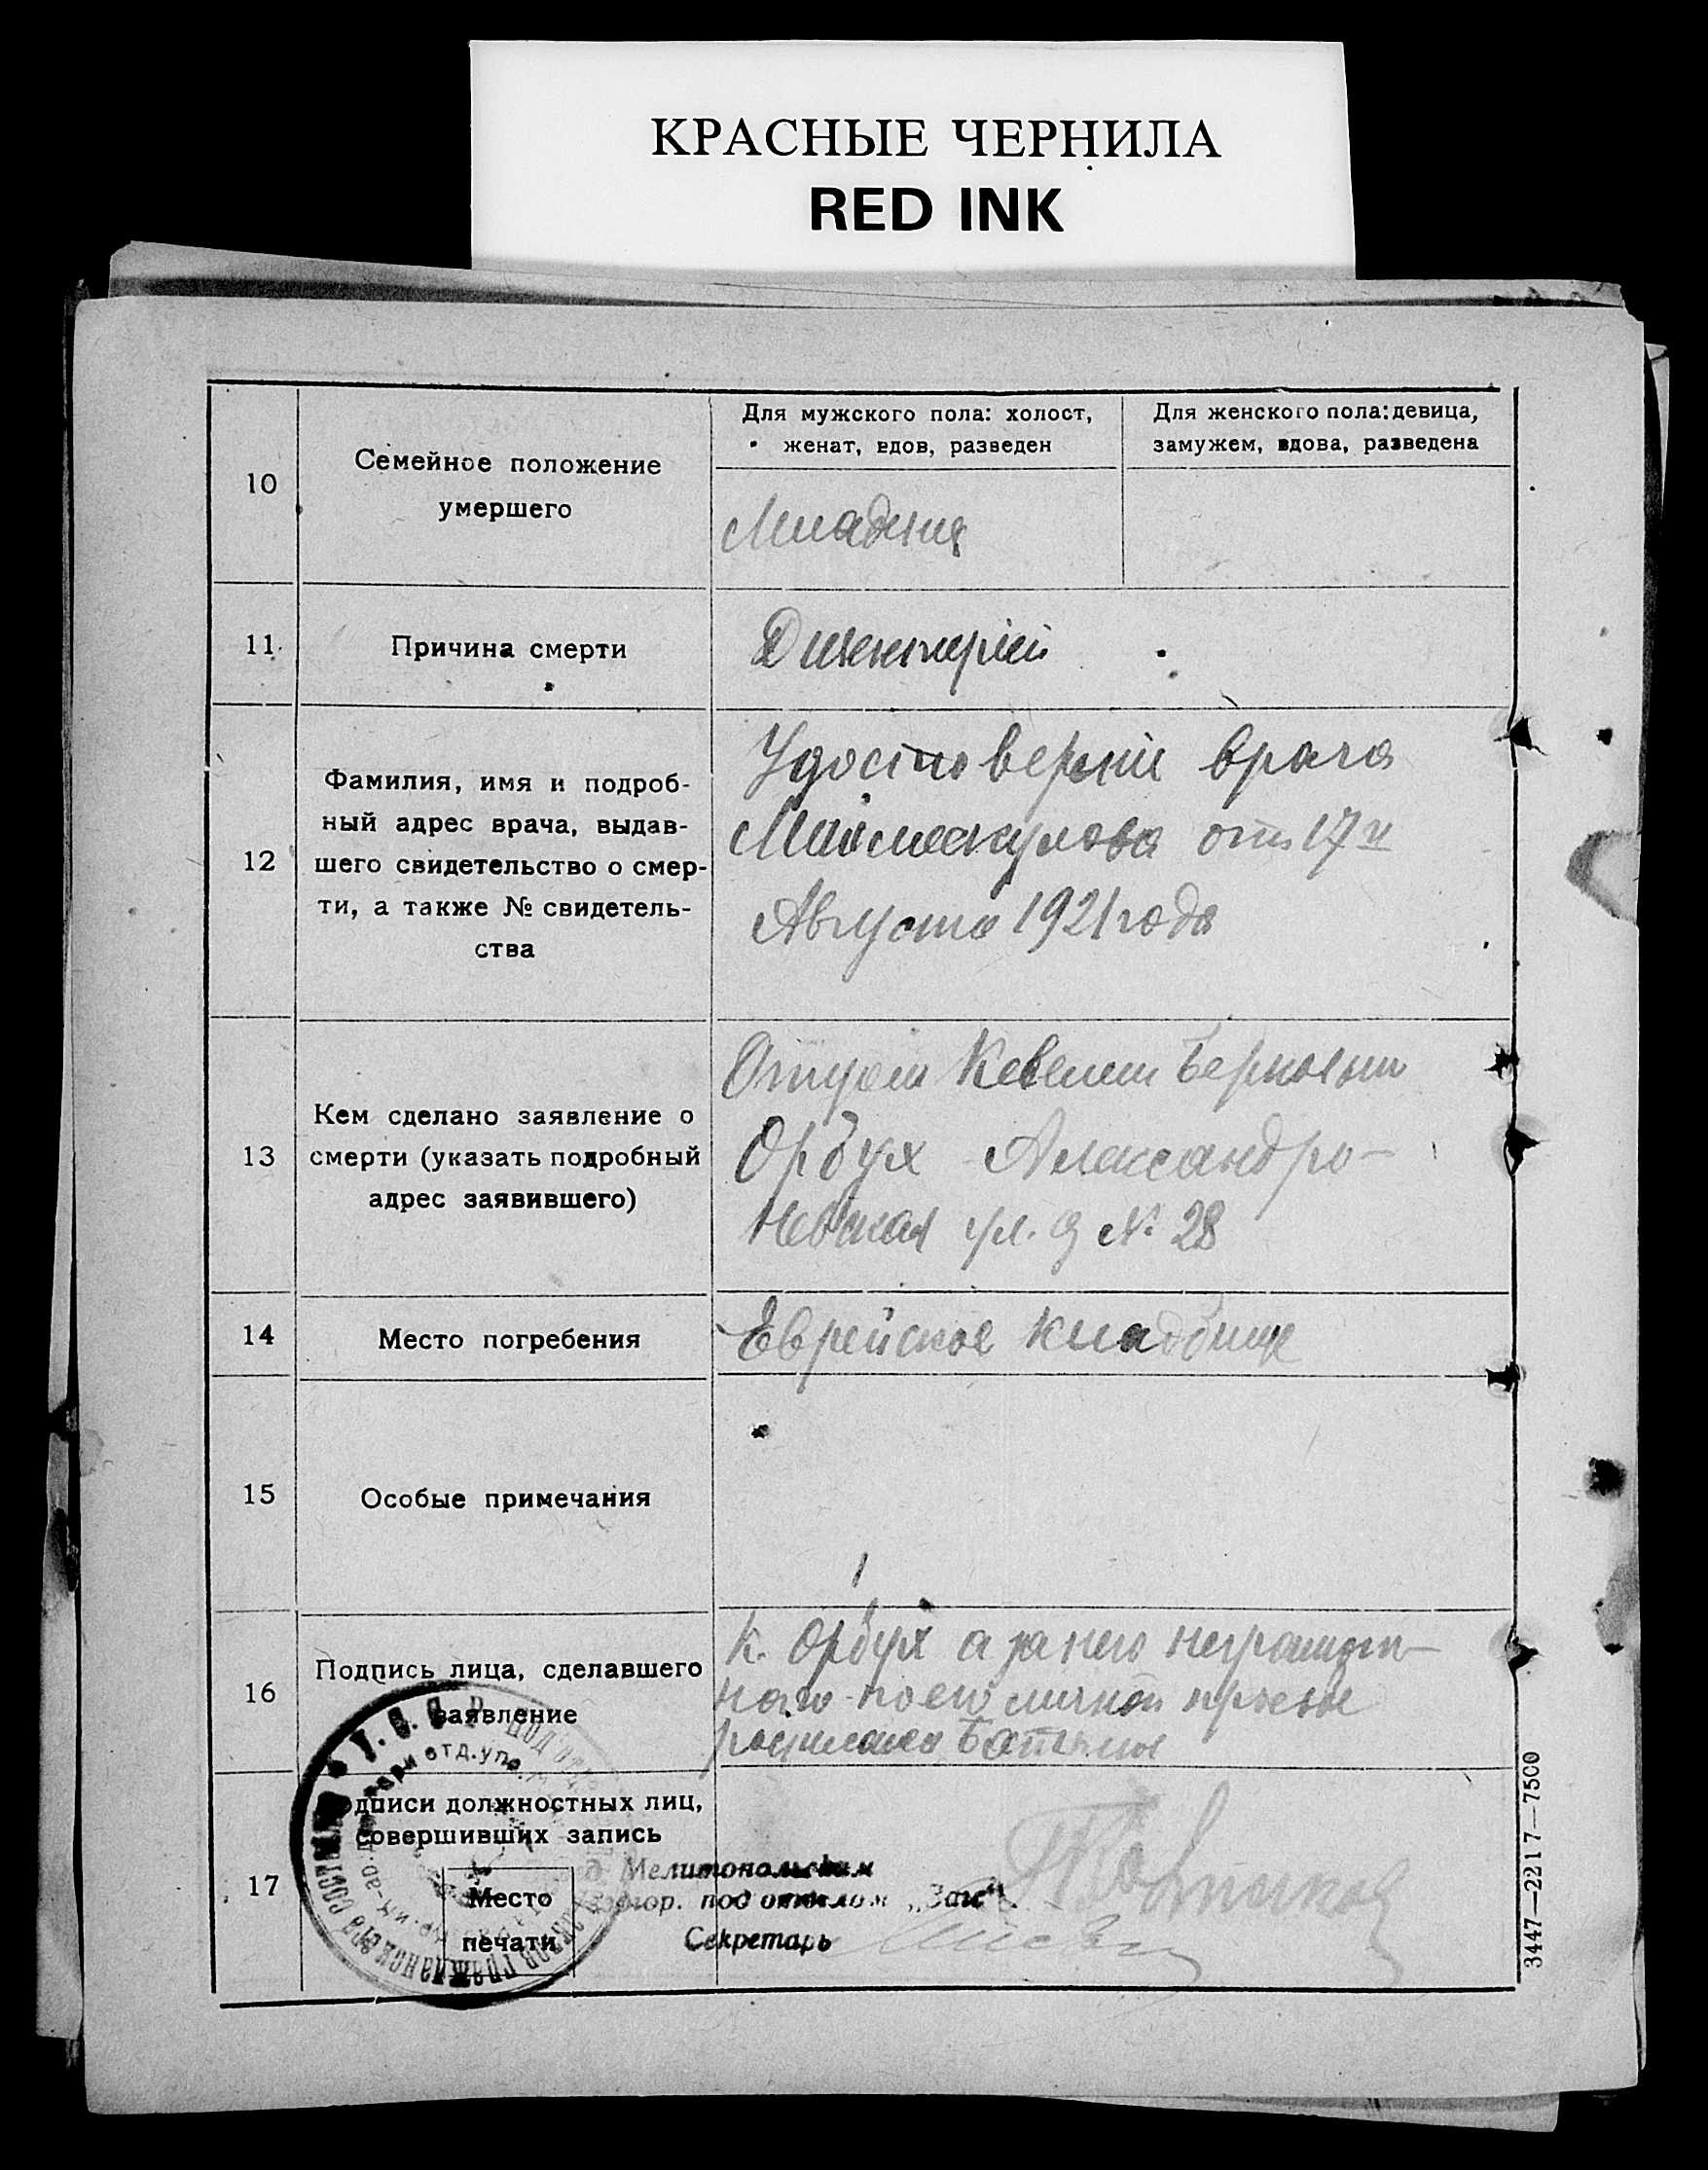 КРАСНЫЕ ЧЕРНИЛА
RED INK
10
Семейное положение
умершего
Для мужского пола: холост,
женат, вдов, разведен
Для женского пола: девица,
замужем, вдова, разведена
Младенец
11
Причина смерти
Дизентерiей
12
Фамилия, имя и подроб-
ный адрес врача, выдав-
шего свидетельство о смер-
ти, а также № свидетель-
ства
Удостоверение врача
от 17го
Августа 1921 года
13
Кем сделано заявление о
смерти (указать подробный
адрес заявившего)
Отцом
Орбух Александро-
Невская ул. д № 28
14
Место погребения
Еврейское кладбище
15
Особые примечания
16
Подпись лица, сделавшего
заявление
К. Орбух а за него неграмот-
ного по его личной просьбе
расписался
17
Подписи должностных лиц,
совершивших запись
Место
печати
Мелитопольским
гор. под отделом „Загс“
Секретарь
3447—2217—7500